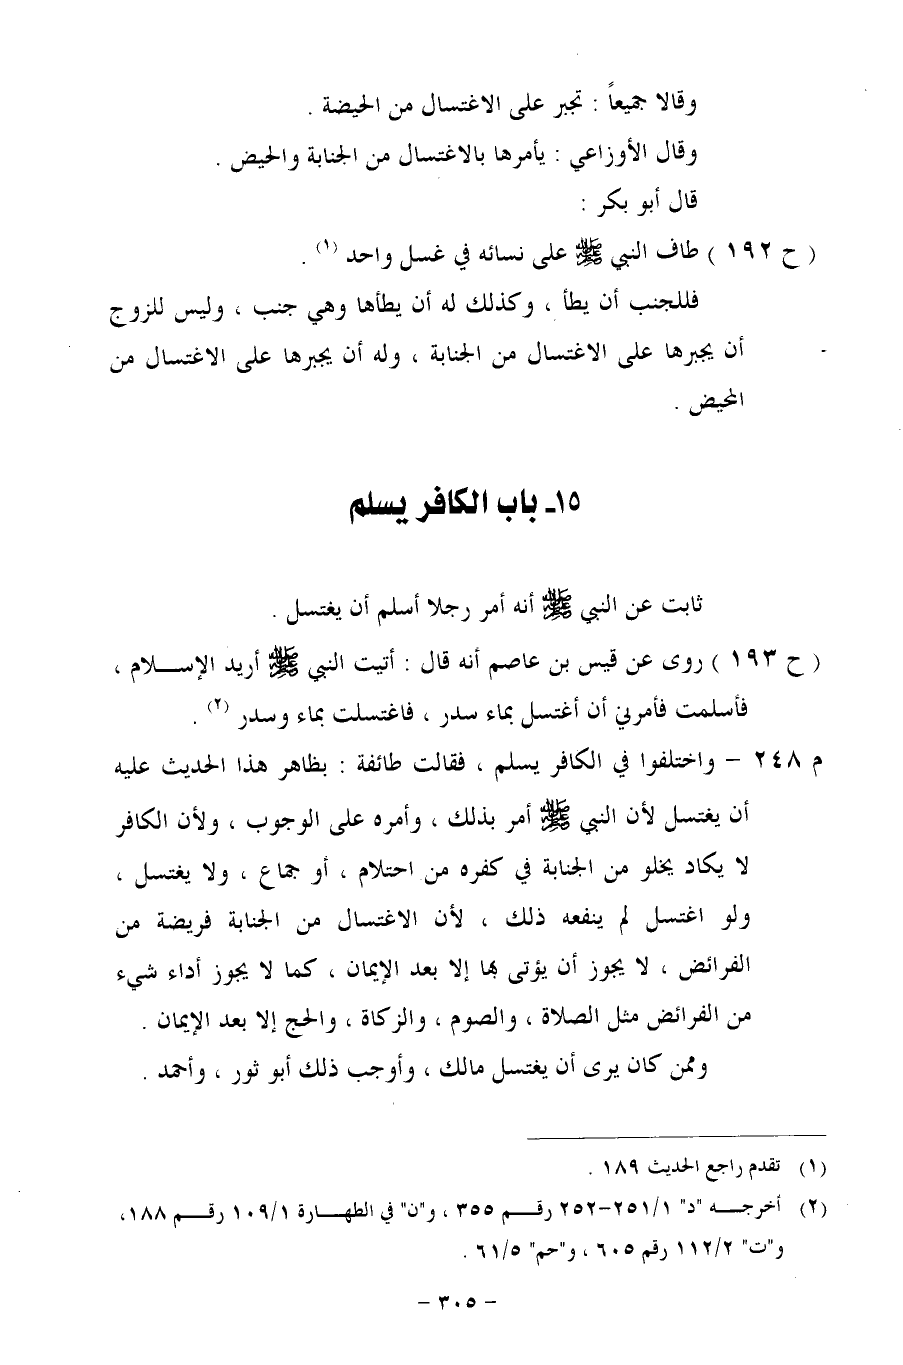 وقالا جميعاً : تجبر على الاغتسال من الحيضة .
وقال الأوزاعي : يأمرها بالاغتسال من الجنابة والحيض .
قال أبو بكر :
( ح ١٩٢ ) طاف النبي ﷺ على نسائه في غسل واحد (١) .
فللجنب أن يطأ ، وكذلك له أن يطأها وهي جنب ، وليس للزوج
أن يجبرها على الاغتسال من الجنابة ، وله أن يجبرها على الاغتسال من
المحيض .
١٥ـ باب الكافر يسلم
ثابت عن النبي ﷺ أنه أمر رجلا أسلم أن يغتسل .
( ح ١٩٣ ) روى عن قيس بن عاصم أنه قال : أتيت النبي ﷺ أريد الإسلام ،
فأسلمت فأمرني أن أغتسل بماء سدر ، فاغتسلت بماء وسدر (٢) .
م ٢٤٨ – واختلفوا في الكافر يسلم ، فقالت طائفة : بظاهر هذا الحديث عليه
أن يغتسل لأن النبي ﷺ أمر بذلك ، وأمره على الوجوب ، ولأن الكافر
لا يكاد يخلو من الجنابة في كفره من احتلام ، أو جماع ، ولا يغتسل ،
ولو اغتسل لم ينفعه ذلك ، لأن الاغتسال من الجنابة فريضة من
الفرائض ، لا يجوز أن يؤتى بها إلا بعد الإيمان ، كما لا يجوز أداء شيء
من الفرائض مثل الصلاة ، والصوم ، والزكاة ، والحج إلا بعد الإيمان .
وممن كان يرى أن يغتسل مالك ، وأوجب ذلك أبو ثور ، وأحمد .
(١) تقدم راجع الحديث ١٨٩ .
(٢) أخرجه "د" ٢٥١/١–٢٥٢ رقم ٣٥٥ ، و"ن" في الطهارة ١٠٩/١ رقم ١٨٨،
و"ت" ١١٢/٢ رقم ٦٠٥ ، و"حم" ٦١/٥ .
– ٣٠٥ –